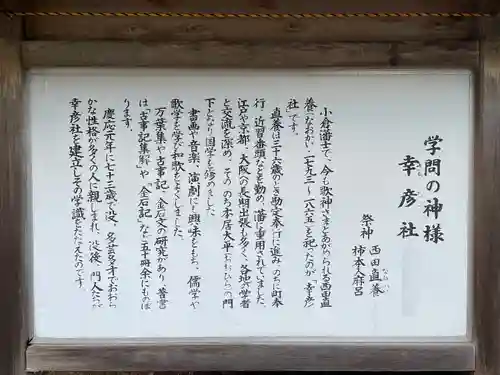 学問の神様
幸彦社
祭神 西田直養
柿本人麻呂
小倉藩士で、今も歌神さまとあがめられる西田直
養(なおかい、一七九三〜一八六五)を祀ったのが「幸彦
社」です。
直養は三十六歳のとき勘定奉行に進み、のちに町奉
行、近習番頭などを勤め、藩に重用されていました。
江戸や京都、大阪への長期出張も多く、各地の学者
と交流を深め、そののち本居大平(もとおりおおひら)の門
下となり国学を修めました。
書画や音楽、演劇にも興味をもち、儒学や
歌学を学んで和歌をよくしました。
万葉集や古事記、金石文の研究があり、著書
は「古事記集解」や「金石記」など五十冊余にものぼ
ります。
慶応元年に七十三歳で没、多芸多才でおおら
かな性格が多くの人に親しまれ、没後、門人たちが
幸彦社を建立しその学識をたたえたのです。